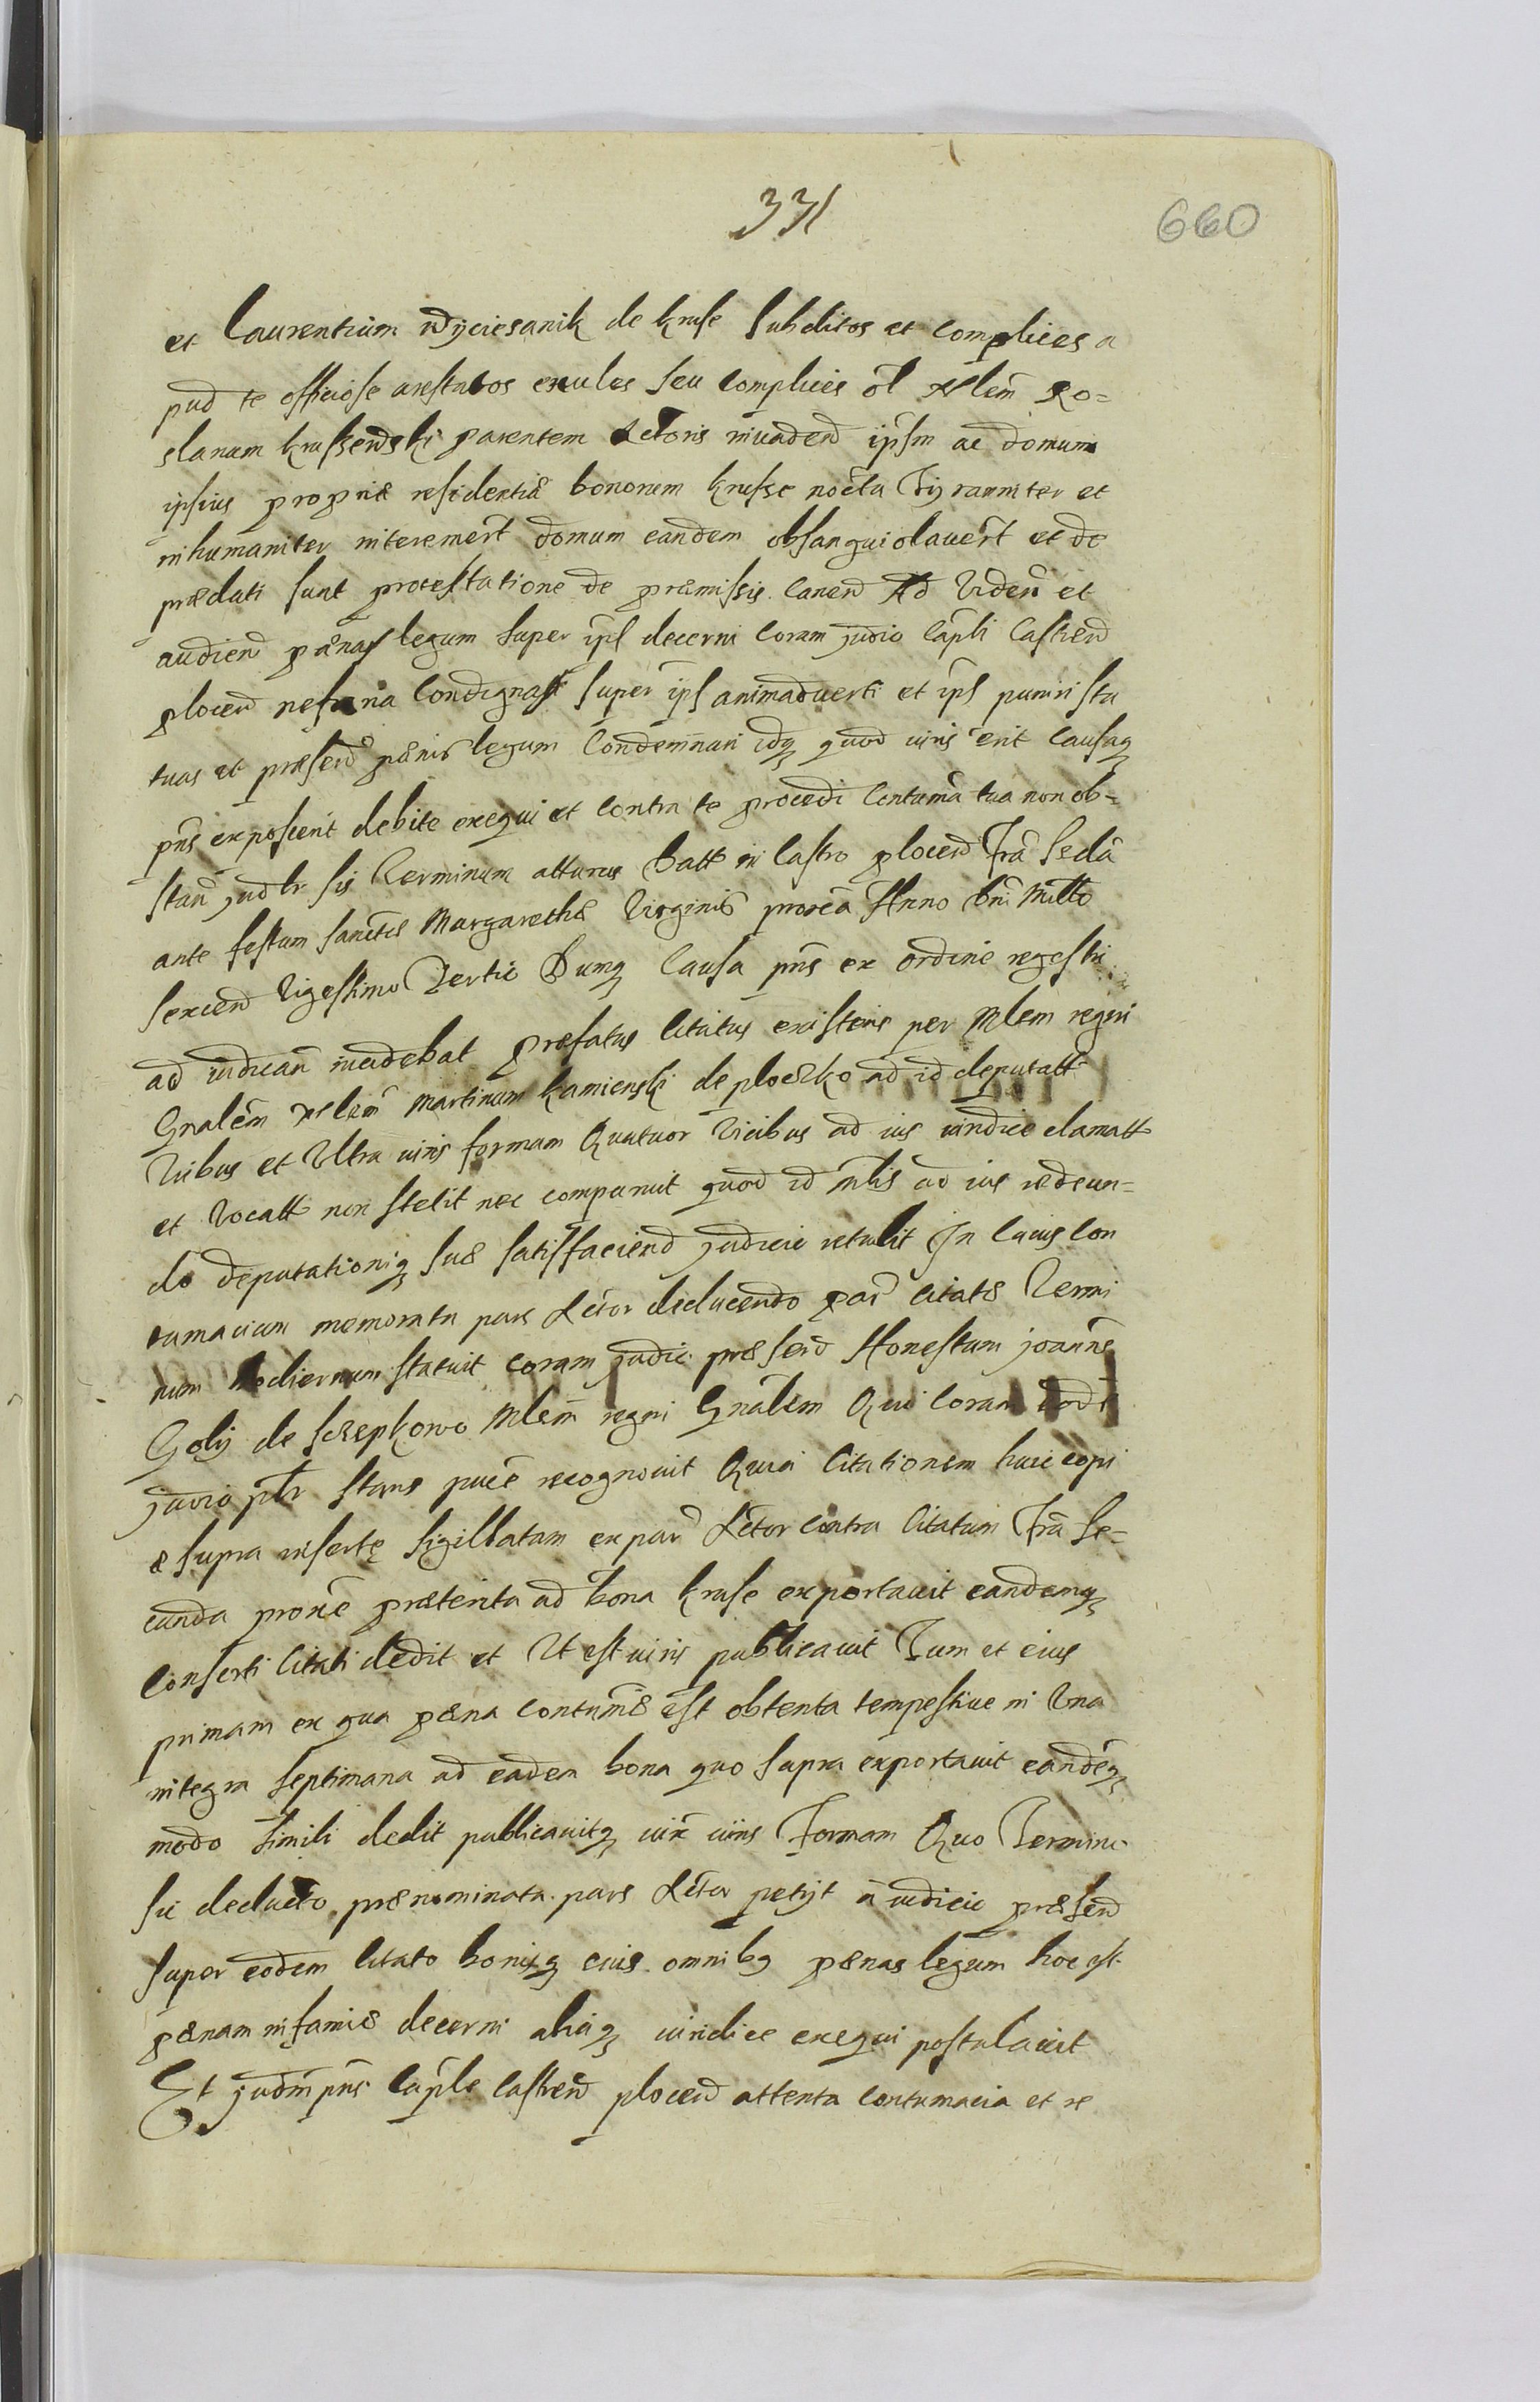 331
660
et Laurentium Wyciesanik de Kruse subditos et complices a
pud te officiose arestatos exules seu complices ol Nblem Ro=
slanum Krussewski parentem Actoris invadend ipsm ac domum
ipsius propriæ residentiæ bonorum Krusse nocta Tyranniter et
inhumaniter interemert domum eandem obsanguiolavert et de
prædati sunt protestatione de præmissis canen Ad Viden et
audien pænas legum super ips decerni coram judio Capli Castren
plocen nefaria condignas super ips animadverti et ips puniri sta
tuas et præsen pænis legum Condemnari idq quod iuris erit causaq
pns exposcerit debite exequi et contra te procedi contuma tua non ob=
stan jud br sis Terminum atturus Datt in Castro plocen fra secda
ante festum sanctæ Margarethæ Virginis proxa Anno Dni Millo
sexcen Vigesimo Tertio Dumq Causa pns ex ordine regestri
ad iudican incidebat præfatus Citatus existens per Mlem regni
Gnalem Nblem Martinum Kamienski de ploczko ad id deputatt
Vicibus et Ultra iuris formam Quatuor Vicibus ad ius iuridice clamatt
et Vocatt non stetit nec comparuit quod id Mlis ad ius redeun=
do deputationiq suæ satisfaciend judicio retulit In cuius con
tumaciam memorata pars Actor deducendo par citatæ Termi
num hodiernum statuit coram judic præsen Honestum joanne
Goly de Sczepkowo Mlem regni Gnalem Qui coram eode
judio pltr stans puce recognovit Quia Citationem huic copi
æ supra insertę sigillatam ex par Actor contra Citatum fra se=
cunda proxe præterita ad bona Kruse exportavit eandemq
Conserti Citati dedit et Ut est iuris publicavit Tum et eius
primam ex qua pæna contumæ est obtenta tempestive in Una
integra septimana ad eadem bona quo supra exportavit eandeq
modo simili dedit publicavitq iux iuris Formam Quo Termino
sic deducto prænominata pars Actor petyt a iudicio præsen
super eodem citato bonisq eius omnibq pænas legum hoc est
pænam infamiæ decerni aliaq iuridice exequi postulavit
Et judm pns Caple Castren plocen attenta contumacia et re